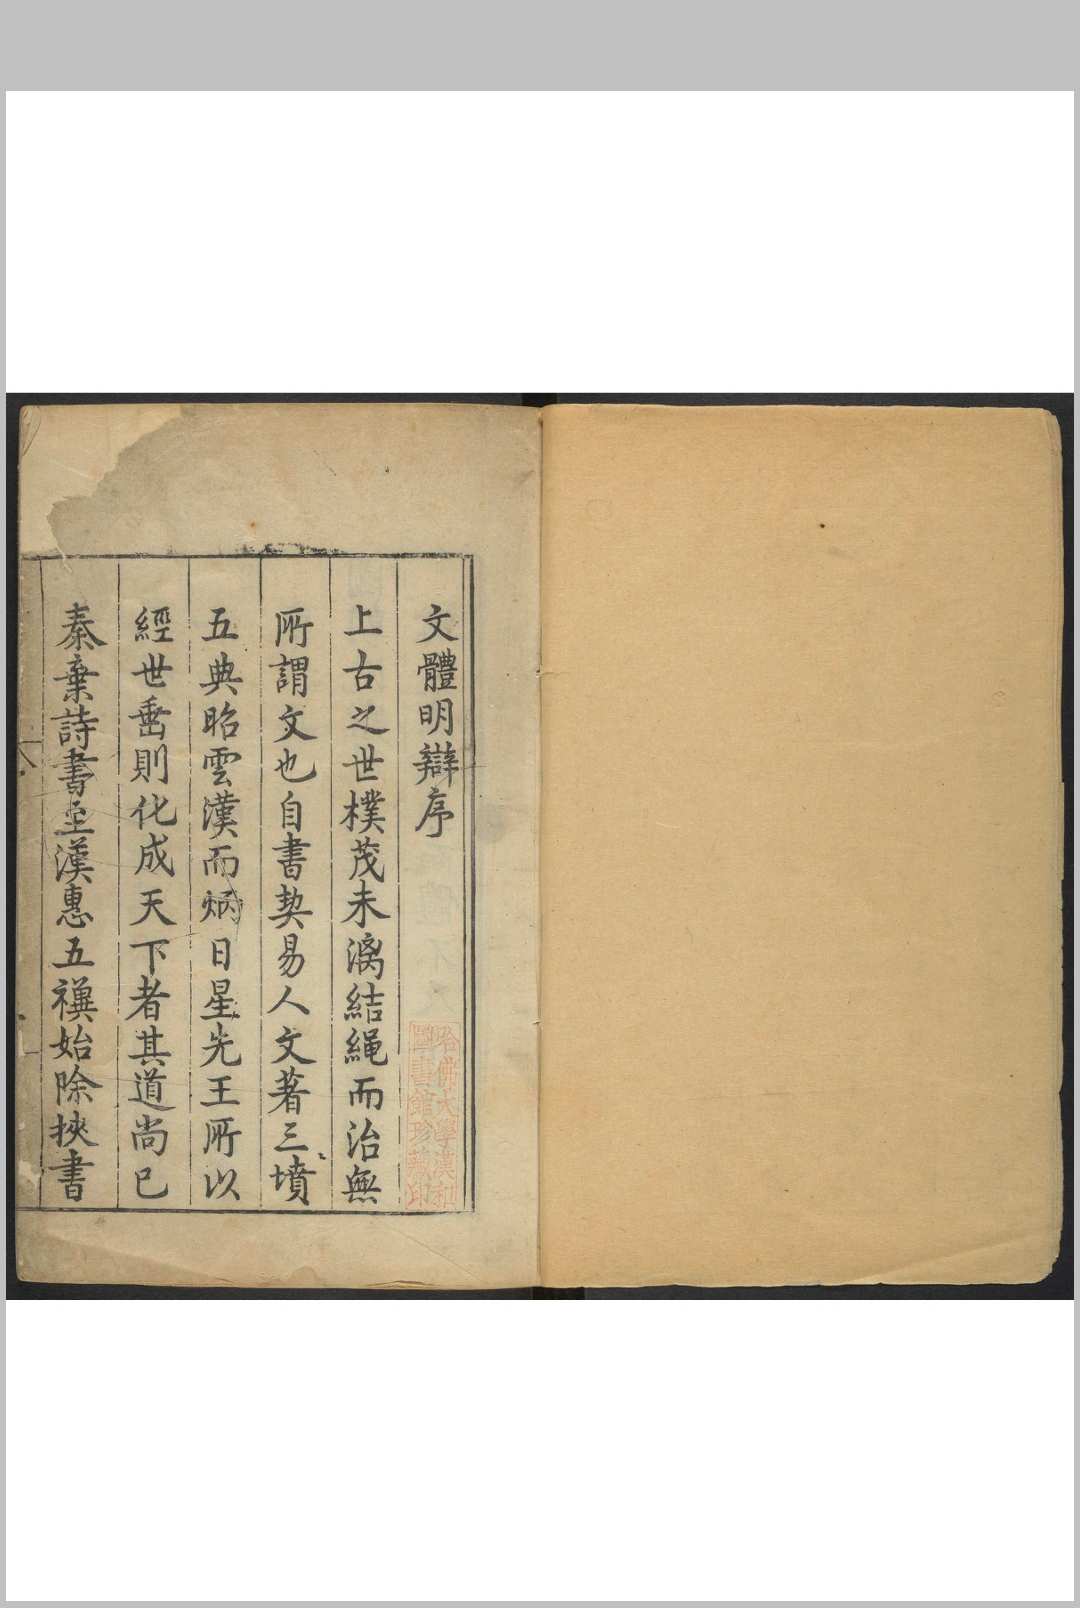 文體明辯序
上古之世樸茂未漓結繩而治無
所謂文也自書契易人文著三墳
五典昭雲漢而炳日星先王所以
經世垂則化成天下者其道尚已
秦棄詩書至漢惠五禩始除挾書
哈佛大學漢和
圖書館珍藏印